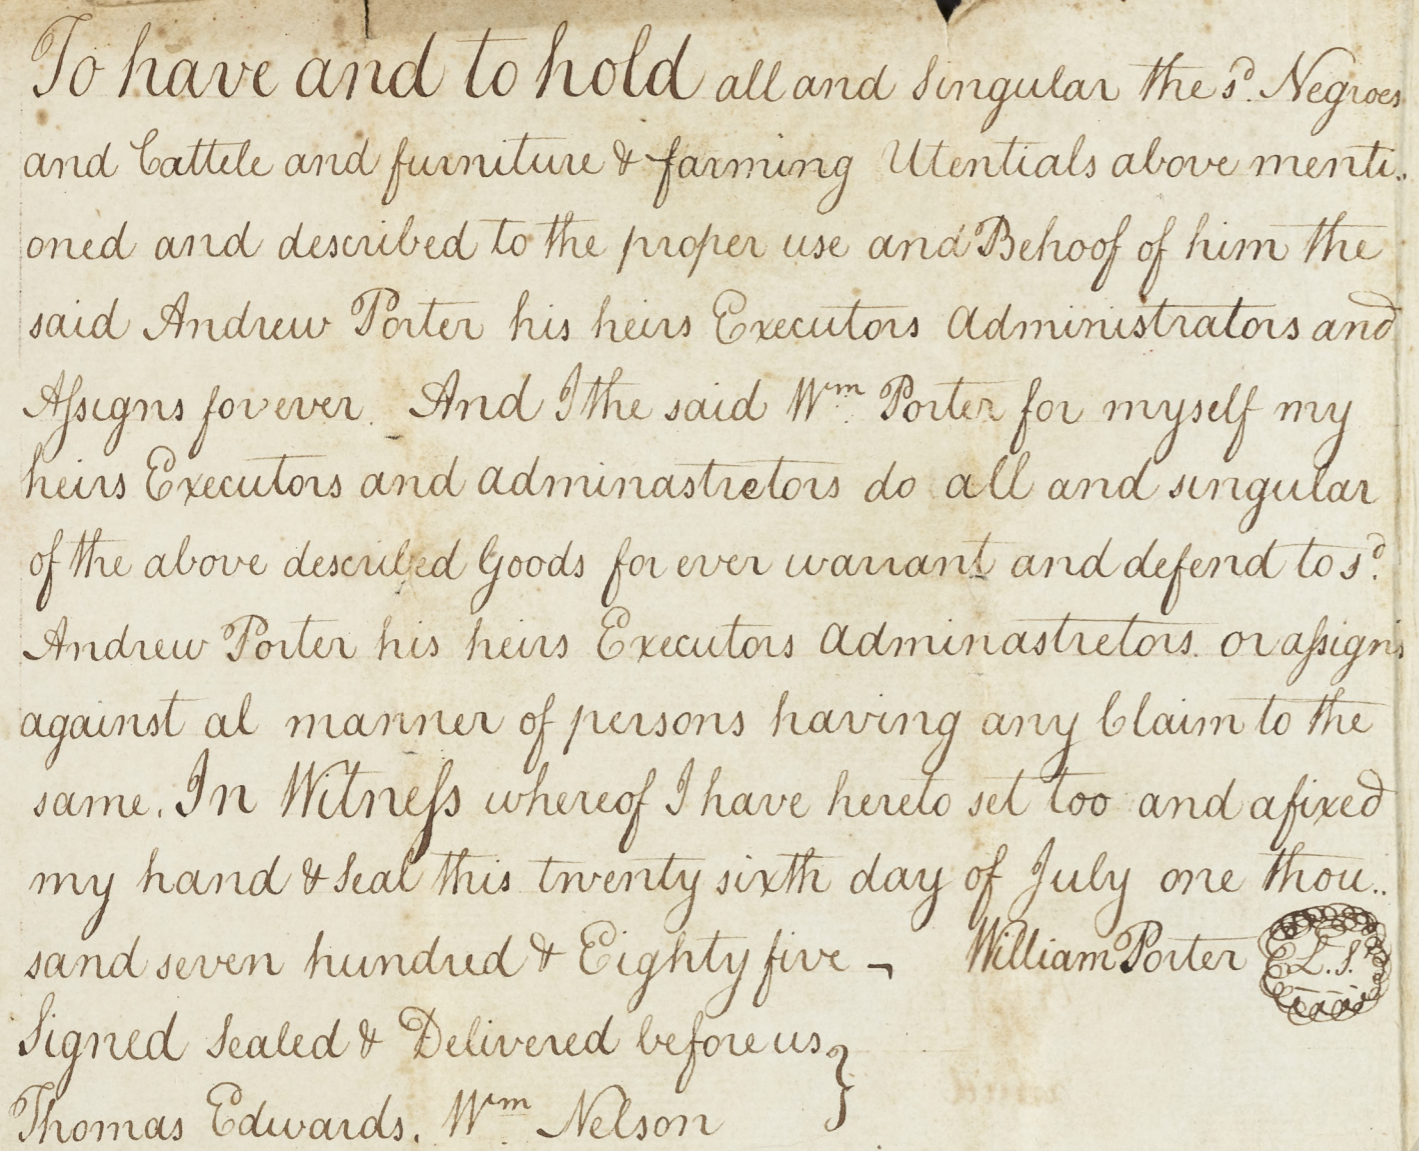 To have and to hold all and Singular the sd. Negroes
and Cattele and furniture & farming Utentials above menti..
oned and described to the proper use and Behoof of him the
said Andrew Porter his heirs Executors Administrators and
Aſsigns for ever. And I the said Wm. Porter for myself my
heirs Executors and adminastretors do all and singular
of the above described Goods for ever warrant and defend to sd.
Andrew Porter his heirs Executors adminastretors. or aſsigns
against al manner of persons having any Claim to the
same. In Witneſs whereof I have hereto set too and afixed
my hand & Seal this twenty sixth day of July one thou..
sand seven hundred & Eighty five ¬ William Porter L.S.
Signed Sealed & Delivered before us }
Thomas Edwards. Wm. Nelson